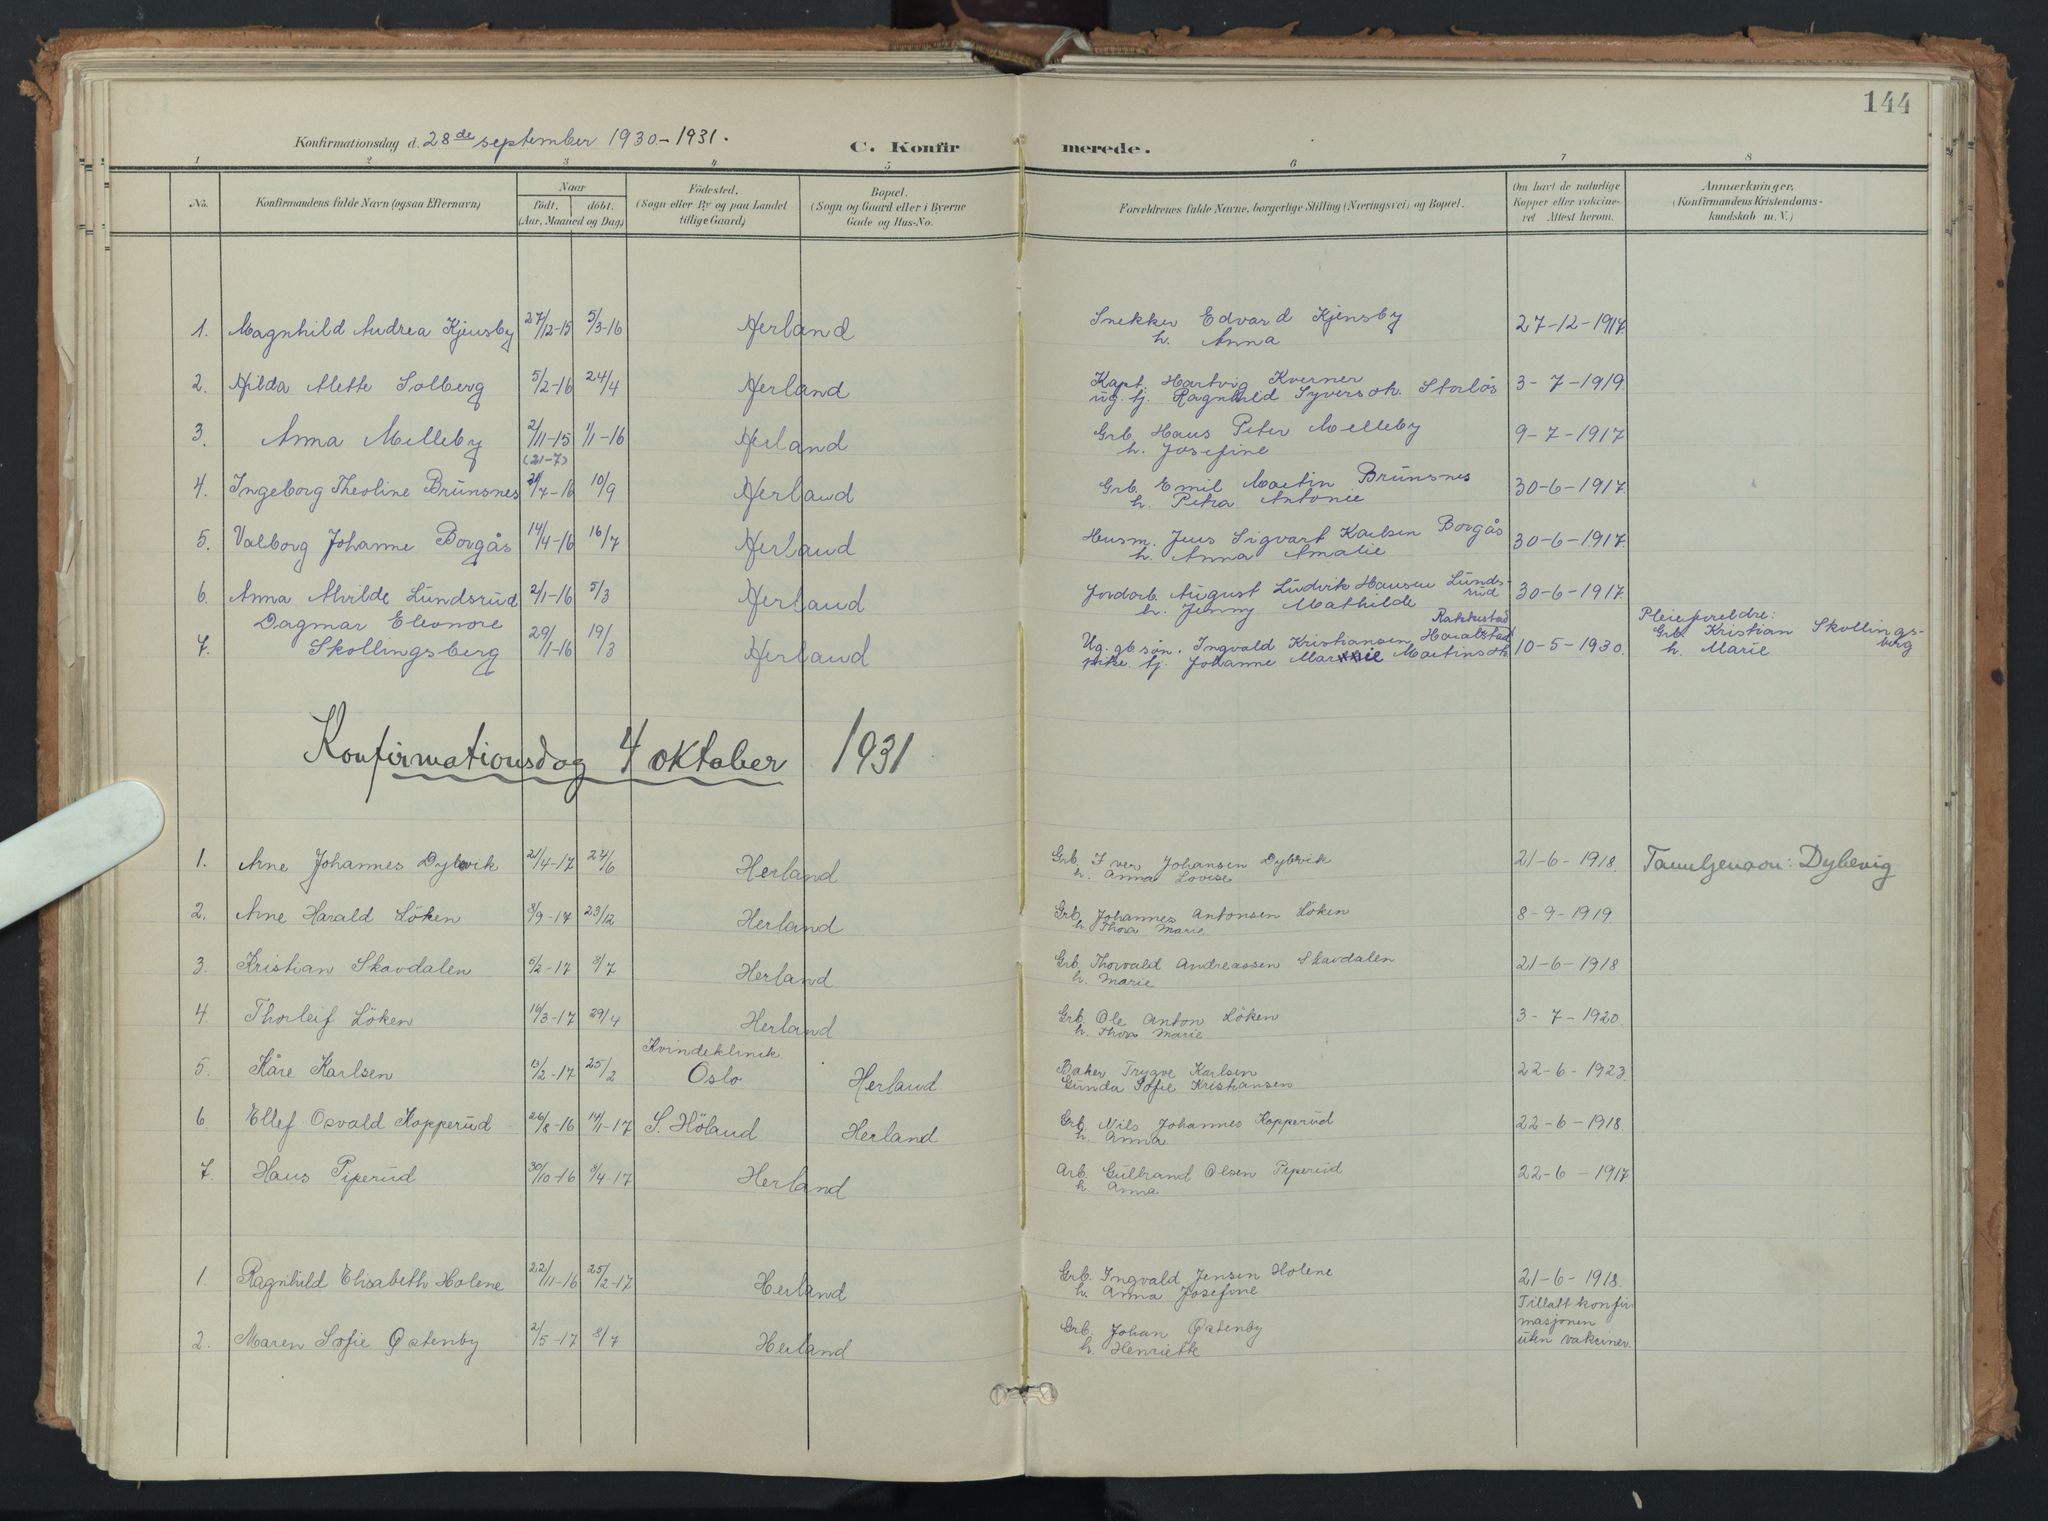 144
Konfirmationsdag d. 28de september 1930-1931.
C. Konfirmerede.
1 2 3 4 5 6 7 8
No.
Konfirmandens fulde Navn (ogsaa Efternavn)
Naar
födt. döbt.
(Aar, Maaned og Dag)
Födested.
(Sogn eller By og paa Landet
tillige Gaard)
Bopæl.
(Sogn og Gaard eller i Byerne
Gade og Hus-No.
Forældrenes fulde Navne, borgerlige Stilling (Næringsvei) og Bopæl.
Om havt de naturlige
Kopper eller vakcine-
ret Attest herom.
Anmærkninger.
(Konfirmandens Kristendoms-
kundskab m. V.)
1. Magnhild Andrea Kjensby 27/12-15 5/3-16 Herland Snekker Edvard Kjensby 27-12-1917
h. Anna
2. Hilda Alette Solberg 5/2-16 24/4 Herland Kapt. Hartvig Kverner 3-7-1919
ug. tj. Ragnhild Syversdt. Storlös
3. Anna Melleby 2/11-15 1/1-16 Herland Grb. Hans Peter Melleby 9-7-1917
h. Josefine
(21-7)
4. Ingeborg Theoline Brünsnes 7-16 10/9 Herland Grb. Emil Martin Brünsnes 30-6-1917.
h. Petra Antonie
5. Valborg Johanne Borgås 14/4-16 16/7 Herland Husm. Jens Sigvart Karlsen Borgås 30-6-1917.
h. Anna Amalie
6. Anna Alvilde Lundsrud 2/1-16 5/3 Herland Jordarb. August Ludvik Hansen Lunds-
rud 30-6-1917.
h. Jenny Mathilde
7. Dagmar Eleonore
Skollingsberg 29/1-16 19/3 Herland Ug. gb søn. Ingvald Kristiansen Rakkestad 10-5-1930.
pike tj. Johanne Marie Martinsdt.
Pleieforeldre:
Grb. Kristian Skollings-
berg
h. Marie
Konfirmationsdag 4 oktober 1931
1. Arne Johannes Dybevik 21/4-17 24/6 Herland Grb. Iver Johansen Dybevik 21-6-1918 : Dybevig
h. Anna Lovise
2. Arne Harald Löken 8/9-17 23/12 Herland Grb. Johannes Antonsen Löken 8-9-1919
h. Thora Marie
3. Kristian Skavdalen 5/2-17 8/7 Herland Grb. Thorvald Andreassen Skavdalen 21-6-1918
h. Marie
4. Thorleif Löken 16/3-17 29/4 Herland Grb. Ole Anton Löken 3-7-1920
h. Thora Marie
5. Kåre Karlsen 13/2-17 25/2 Kvindeklinik.
Oslo Herland Baker Trygve Karlsen 22-6-1923
Gunda Sofie Kristiansen
6. Ellef Osvald Kopperud 26/8-16 14/1-17 S. Höland Herland Grb. Nils Johannes Kopperud 22-6-1918.
h. Anna
7. Hans Piperud 30/10-16 8/4-17 Herland Arb. Gulbrand Olsen Piperud 22-6-1917
h. Anna
1. Ragnhild Elisabeth Holene 22/11-16 25/2-17 Herland Grb. Ingvald Jensen Holene 21-6-1918.
h. Anna Josefine
2. Maren Sofie Østenby 2/5-17 8/7 Herland Grb. Johan Østenby
h. Henriette
Tillatt konfir
masjonen
uten vakciner.